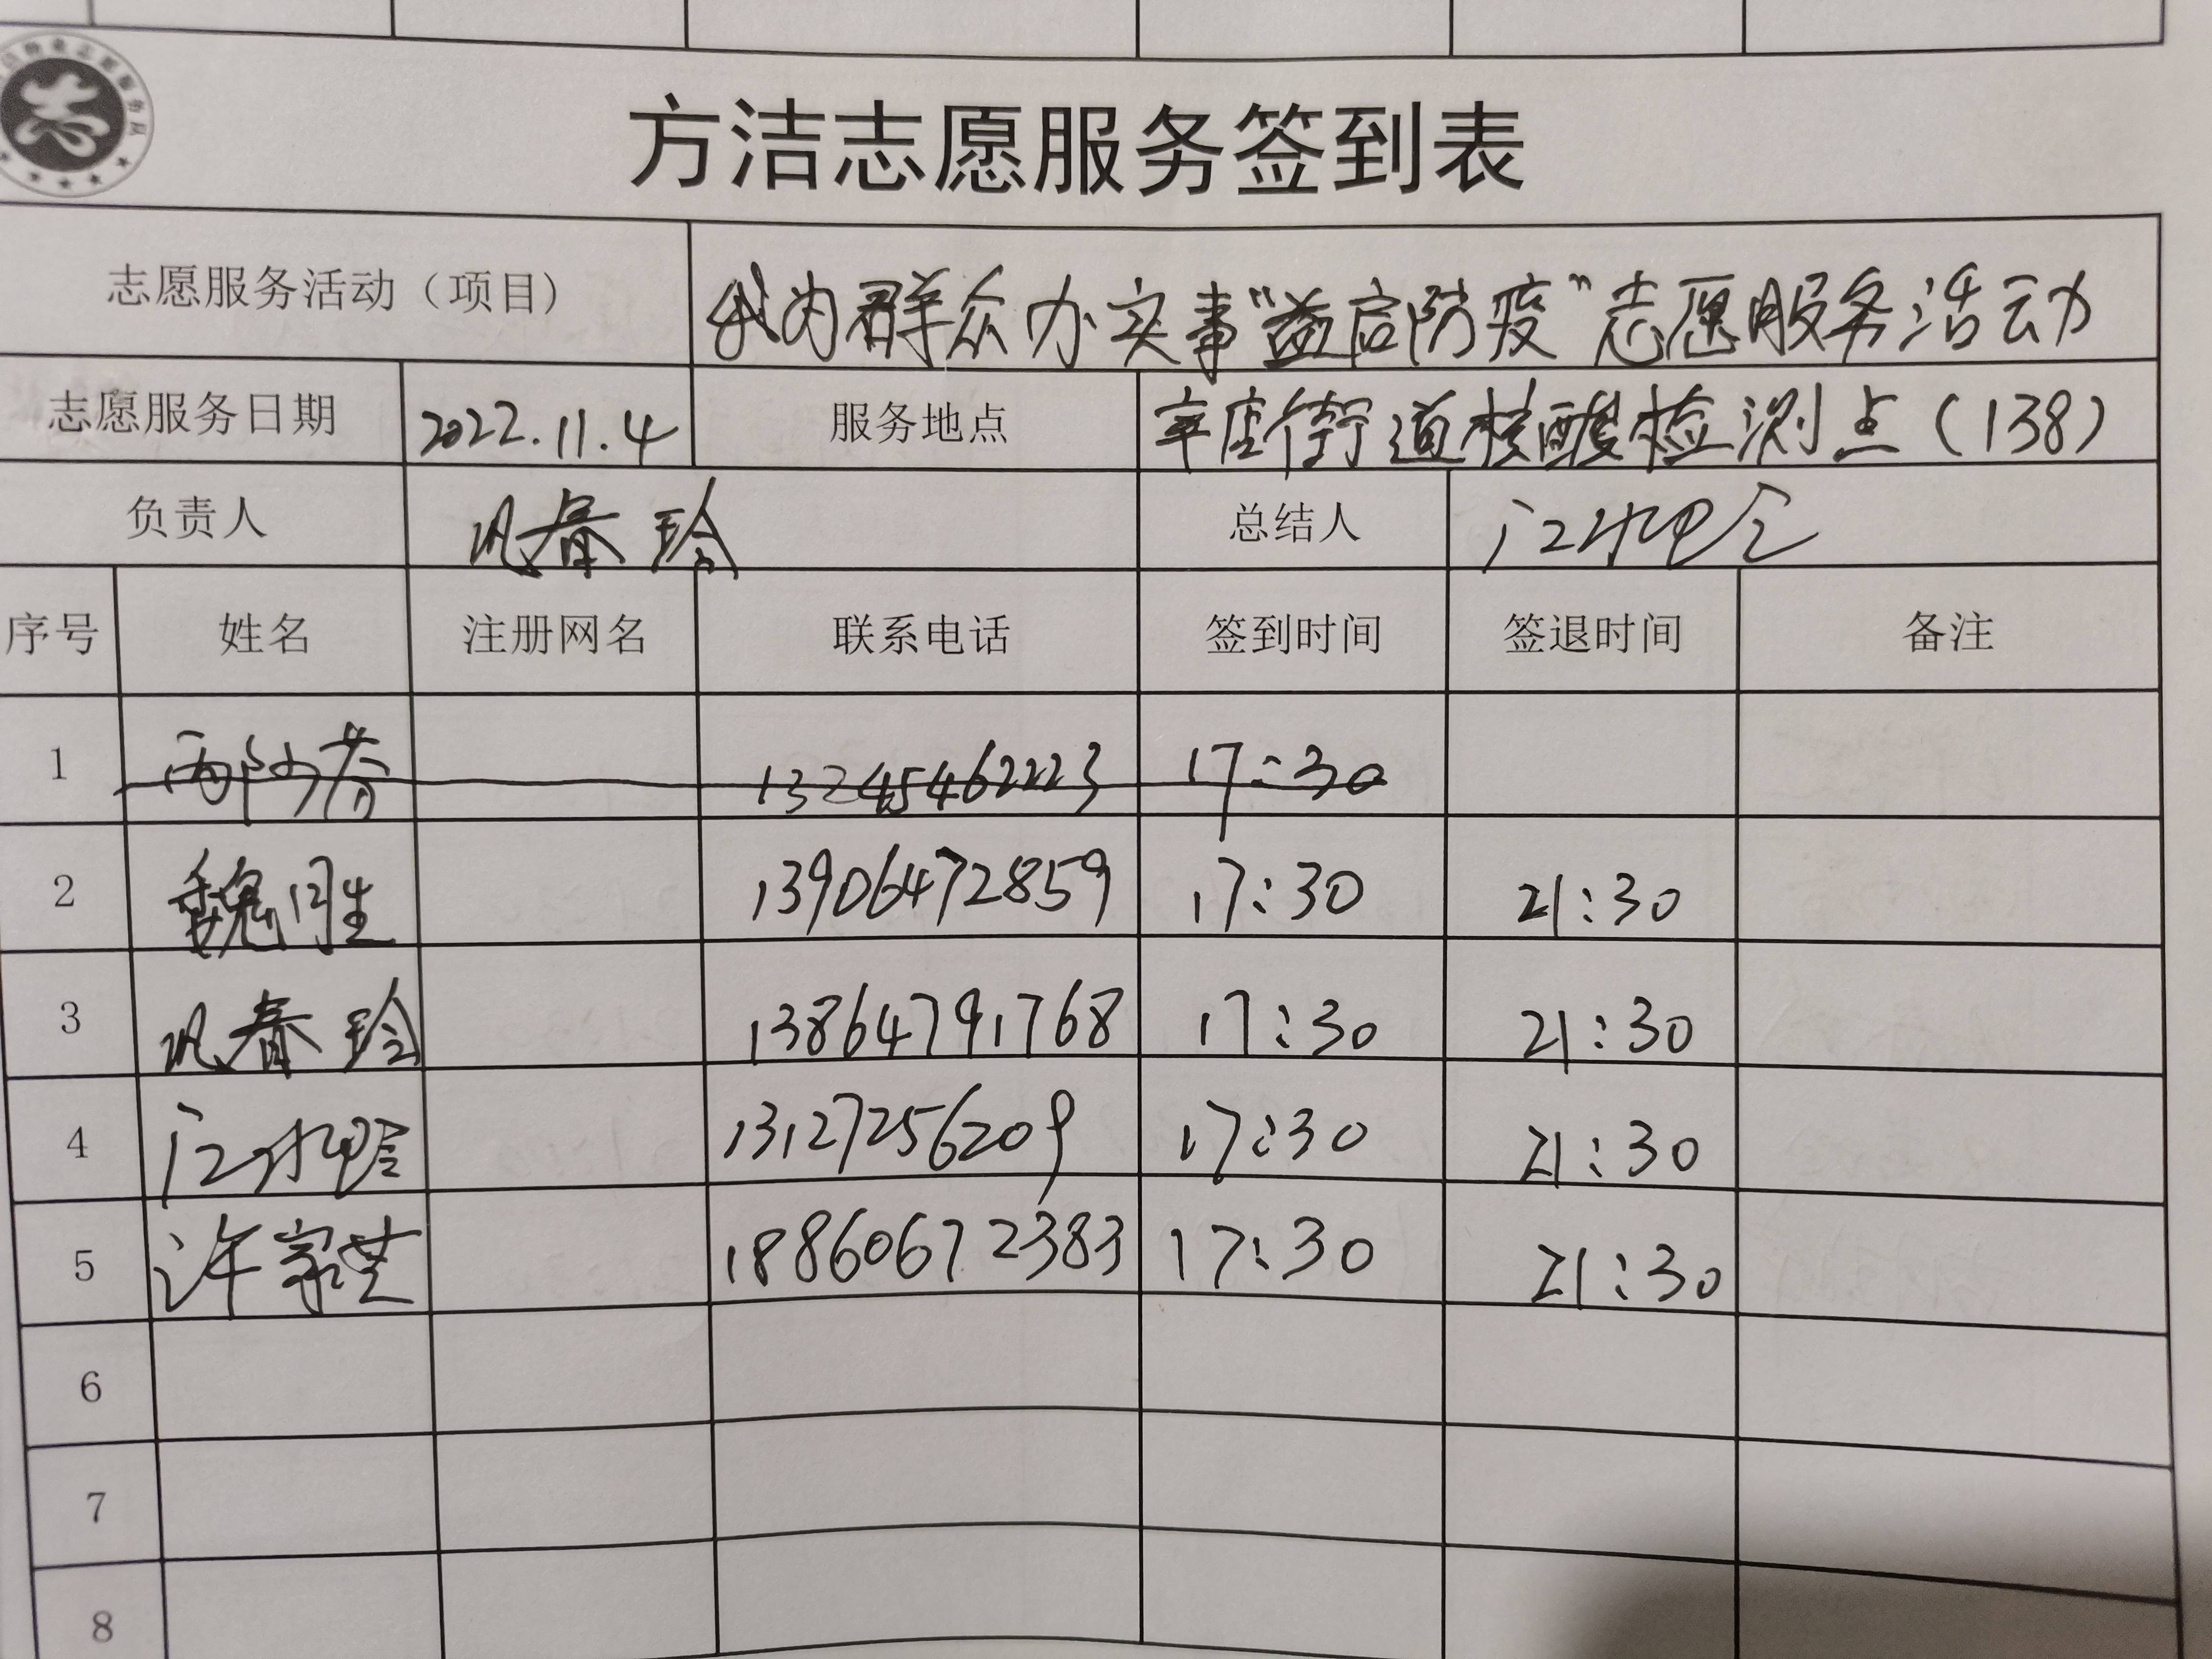 方洁志愿服务签到表
志愿服务活动（项目） 我为群众办实事“益启防疫”志愿服务活动
志愿服务日期 2022.11.4 服务地点 辛店街道核酸检测点（138）
负责人 巩春玲 总结人
序号 姓名 注册网名 联系电话 签到时间 签退时间 备注
1 13245462223 17:30
2 魏同胜 13906472859 17:30 21:30
3 巩春玲 13864791768 17:30 21:30
4 13127256209 17:30 21:30
5 许家芝 18860672383 17:30 21:30
6
7
8